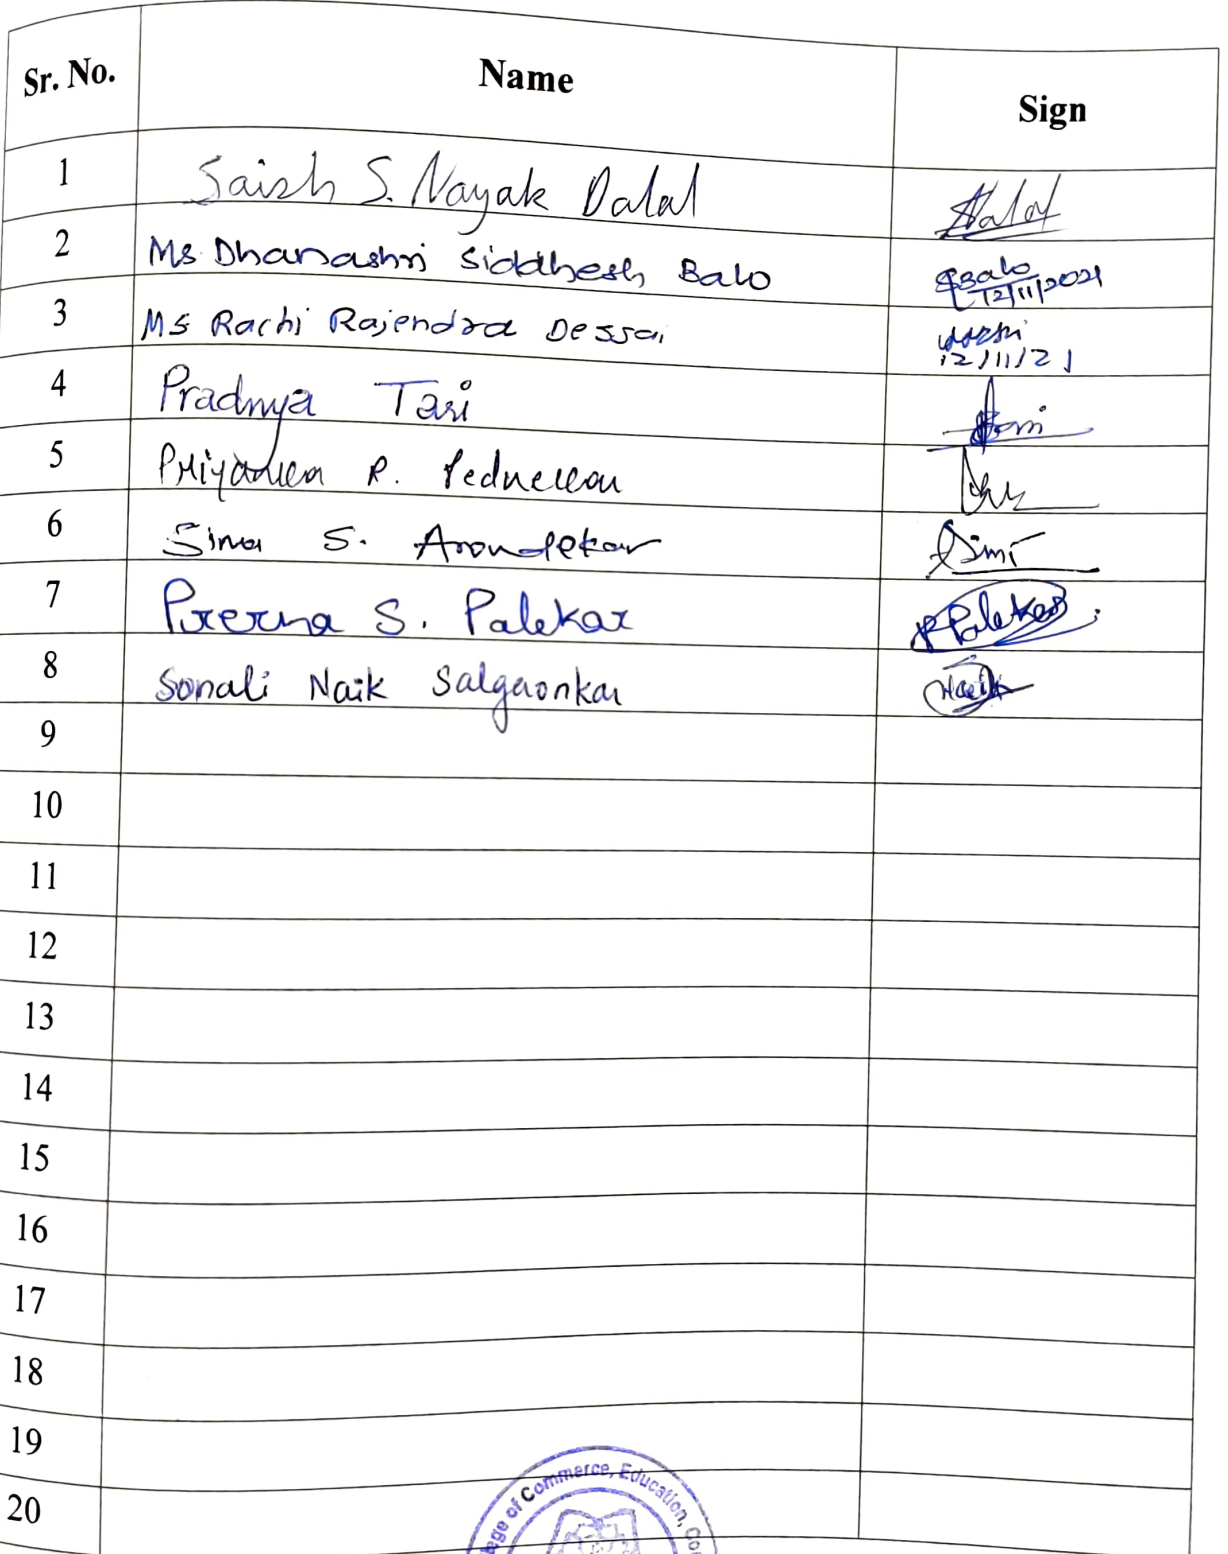 Sr. No. Name Sign
1 Saish S. Nayak Dalal Dalal
2 Ms Dhanashri Siddhesh Balo SBalo
12/11/2021
3 Ms Rachi Rajendra Dessai
12/11/21
4 Pradnya Tari
5 Priyanka R. Pednekar
6 Sima S. Arondekar
7 Prerna S. Palekar PPalekar
8 Sonali Naik Salgaonkar Naik
9
10
11
12
13
14
15
16
17
18
19
20
ege of Commerce, Education, Co